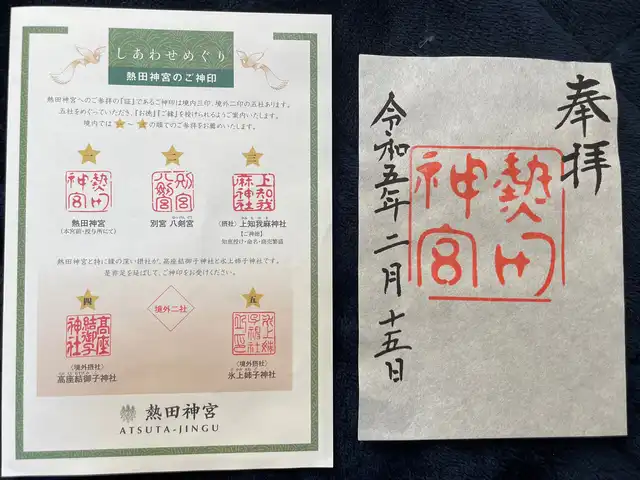 しあわせめぐり
熱田神宮のご神印
熱田神宮へのご参拝の『証』であるご神印は境内三印、境外二印の五社あります。
五社をめぐっていただき、『お徳』『ご縁』を授けられるようご案内いたします。
境内では一〜三の順でのご参拝をお薦めいたします。
一
二
三
熱田神宮
別宮八剣宮
上知我麻神社
熱田神宮
(本宮前・授与所にて)
別宮 八剣宮
〈摂社〉上知我麻神社
【ご神徳】
知恵授け・命名・商売繁盛
熱田神宮と特に縁の深い摂社が、高座結御子神社と氷上姉子神社です。
是非足を延ばして、ご神印をお受けください。
四
境外二社
五
高座結御子神社
氷上姉子神社
〈境外摂社〉
高座結御子神社
〈境外摂社〉
氷上姉子神社
熱田神宮
ATSUTA-JINGU
奉拝
熱田神宮
令和五年二月十五日